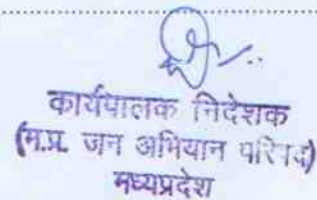 कार्यपालक निदेशक
(म.प्र. जन अभियान परिषद)
मध्यप्रदेश